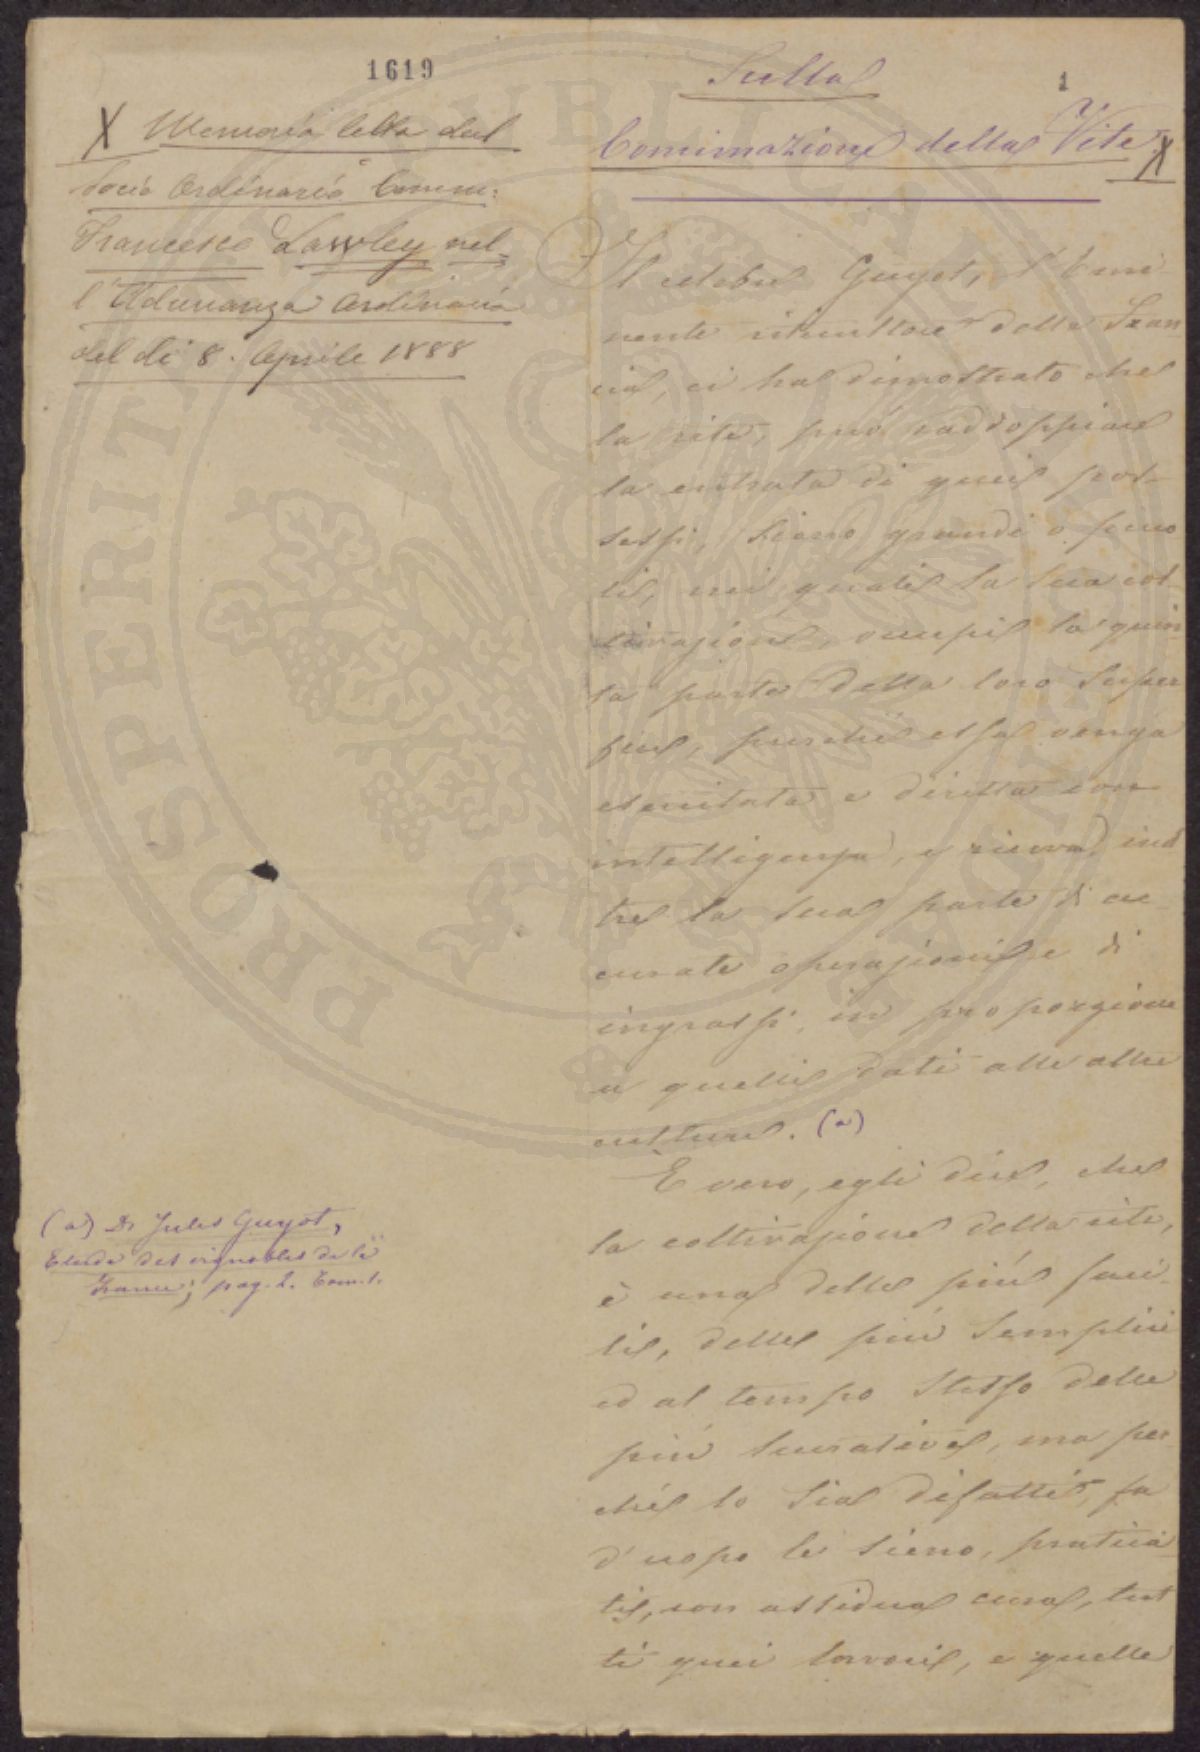 1619
X Memoria letta dal
Socio Ordinario Comm:
Francesco Lawley nel-
l'Adunanza Ordinaria
del dì 8. Aprile 1888
Sulla
1
Concimazione della Vite. X
Il celebre Guyot, l'Emi
nente viticultore della Fran
cia, ci ha dimostrato che
la vite, può raddoppiare
la entrata di quei pos-
sessi, sieno grandi o picco
li, nei quali la sua col-
tivazione, occupi la quin
ta parte della loro super
ficie, purchè essa venga
eseguitata e diretta con
intelligenza, e riceva, inol
tre la sua parte di ac-
curate operazioni e di
ingrassi, in proporzione
a quelli dati alle altre
culture. (a)
È vero, egli dice, che
la coltivazione della vite,
è una delle più faci-
li, delle più semplici
ed al tempo stesso delle
più lucrative, ma per
chè lo sia difatti, fa
d'uopo le sieno, pratica
ti, con assidua cura, tut
ti quei lavori, e quelle
(a) Dr Jules Guyot,
Etude des vignobles de la
France; pag. 2. Tom. 1.
PROSPERITATI PUBLICAE AUGENDAE